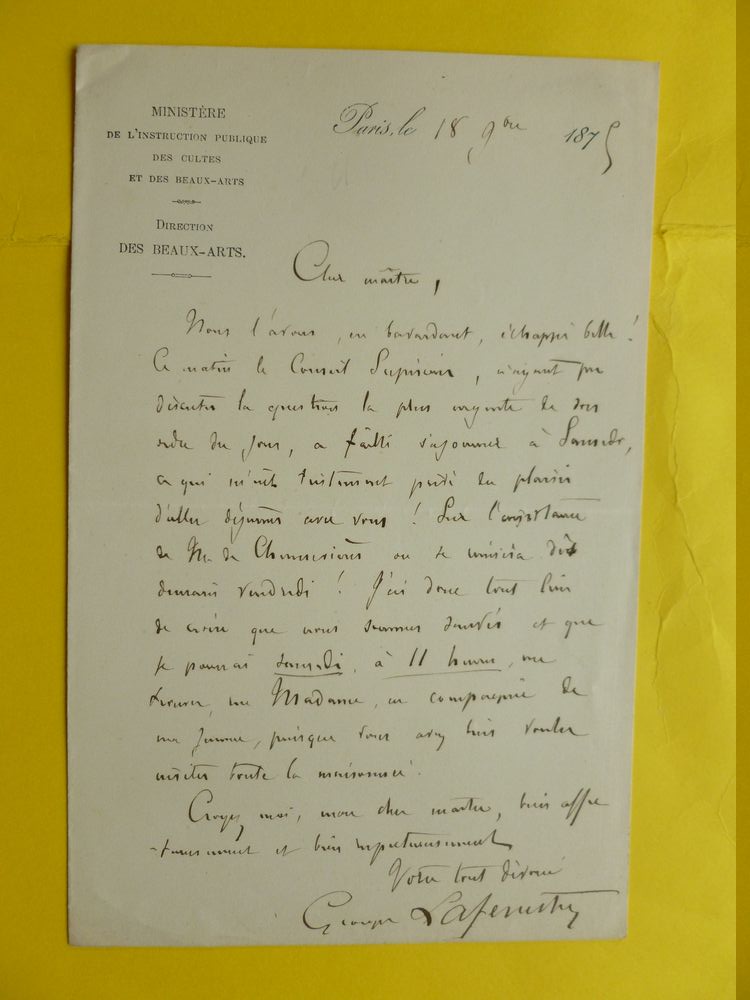 MINISTÈRE
DE L'INSTRUCTION PUBLIQUE
DES CULTES
ET DES BEAUX-ARTS
DIRECTION
DES BEAUX-ARTS.
Paris, le 18 9bre 1875
Cher maître,
Nous l'avons, en bavardant, échappé belle !
Ce matin le Conseil Supérieur, n'ayant pu
discuter la question la plus urgente de son
ordre du jour, a failli s'ajourner à Samedi,
ce qui m'eût tristement privé du plaisir
d'aller déjeuner avec vous ! Sur l'insistance
de M. de Chennevières on se réunira dès
demain vendredi ! J'ai donc tout lieu
de croire que nous sommes sauvés et que
je pourrai samedi, à 11 heures, me
trouver, Madame, en compagnie de
ma femme, puisque vous avez bien voulu
inviter toute la maisonnée.
Croyez moi, mon cher maître, bien affec
-tueusement et bien respectueusement
Votre tout dévoué
Georges Lafenestre